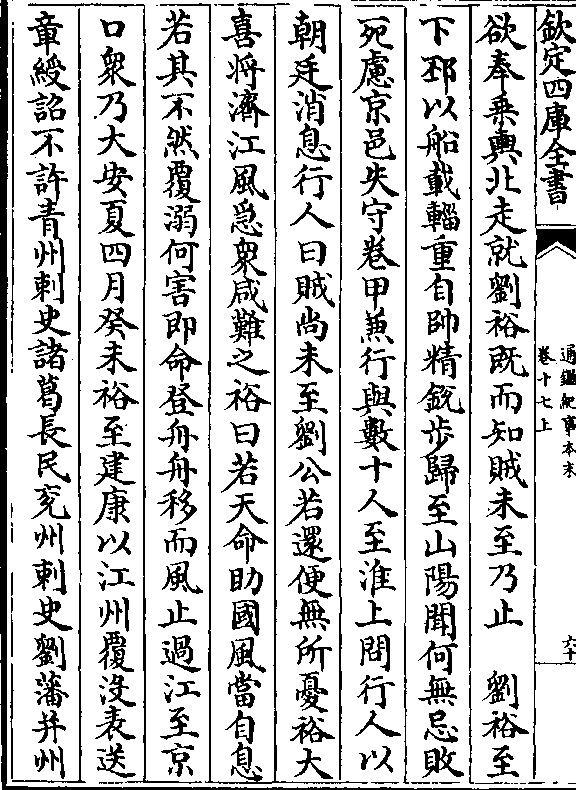 欽定四庫全書
通鑑紀事本末
卷十七上
六十
欲奉乗輿北走就劉裕既而知賊未至乃止　劉裕至
下邳以船載輜重自帥精鋭歩歸至山陽聞何無忌敗
死慮京邑失守卷甲兼行與數十人至淮上問行人以
朝廷消息行人曰賊尚未至劉公若還便無所憂裕大
喜將濟江風急衆咸難之裕曰若天命助國風當自息
若其不然覆溺何害即命登舟舟移而風止過江至京
口衆乃大安夏四月癸未裕至建康以江州覆没表送
章綬詔不許青州刺史諸葛長民兖州刺史劉藩并州